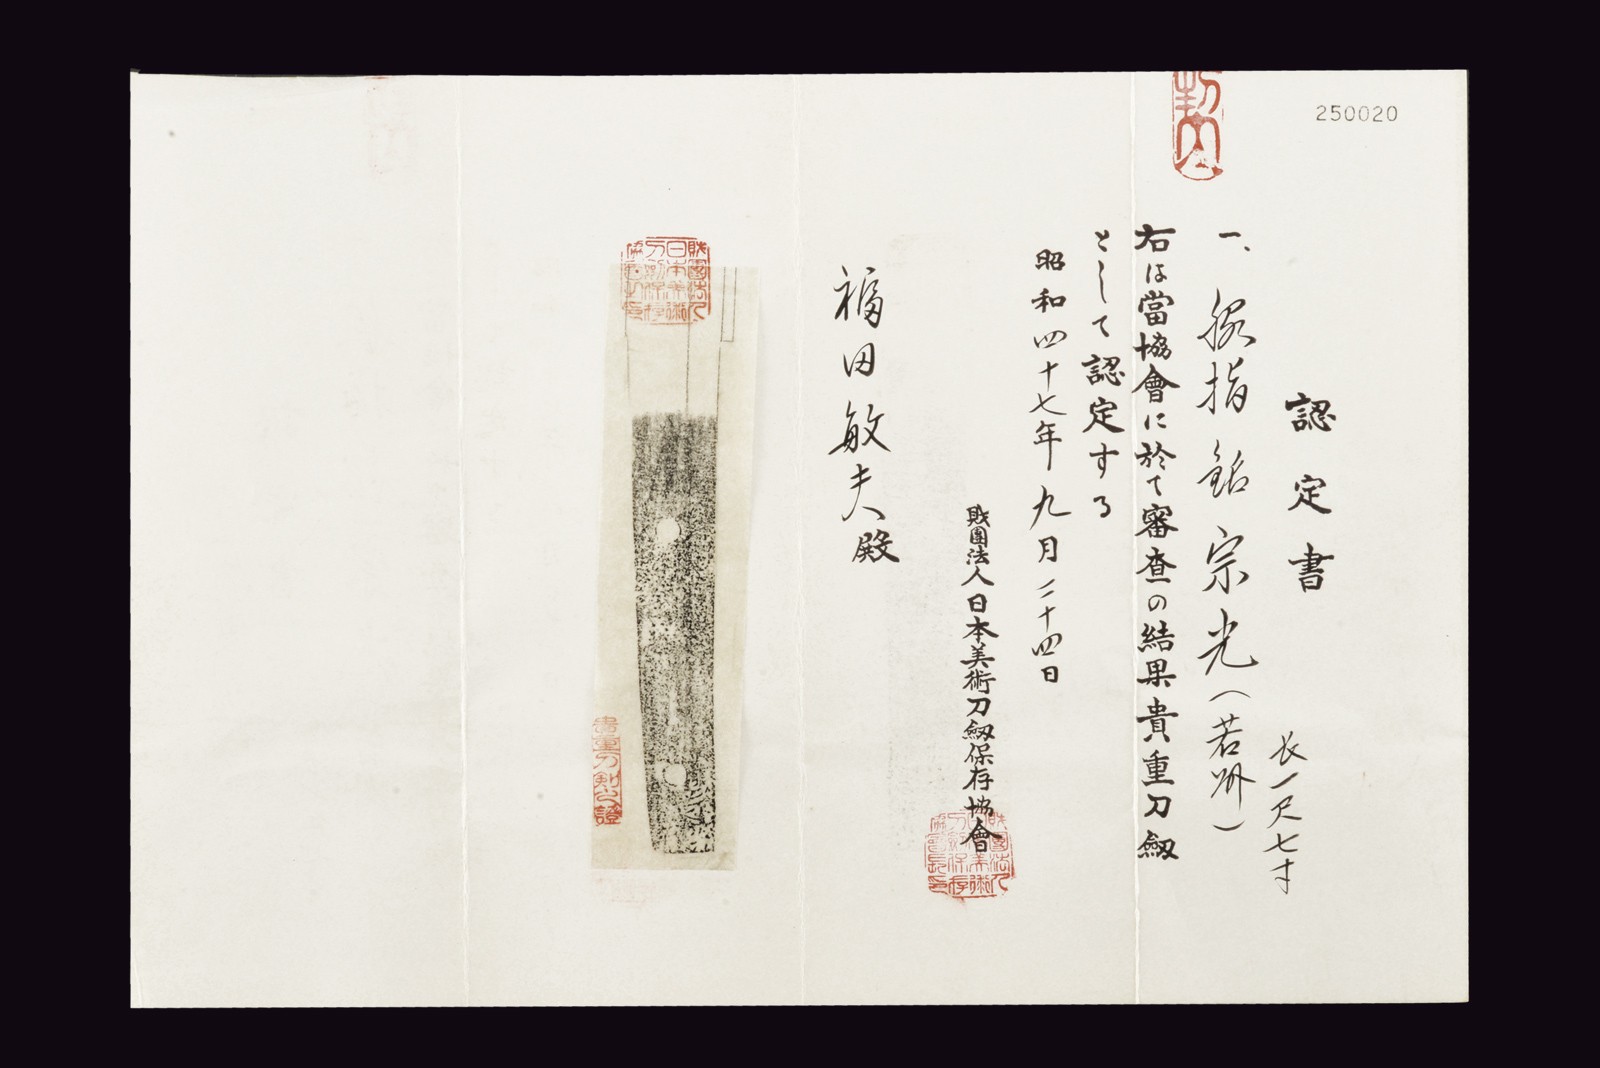 250020
認定書
長一尺七寸
一、脇指 銘 宗光(若州)
右は當協會に於て審査の結果貴重刀劔
として認定する
昭和四十七年九月二十四日
財團法人日本美術刀劔保存協會
福田敏夫殿
貴重刀剣之證